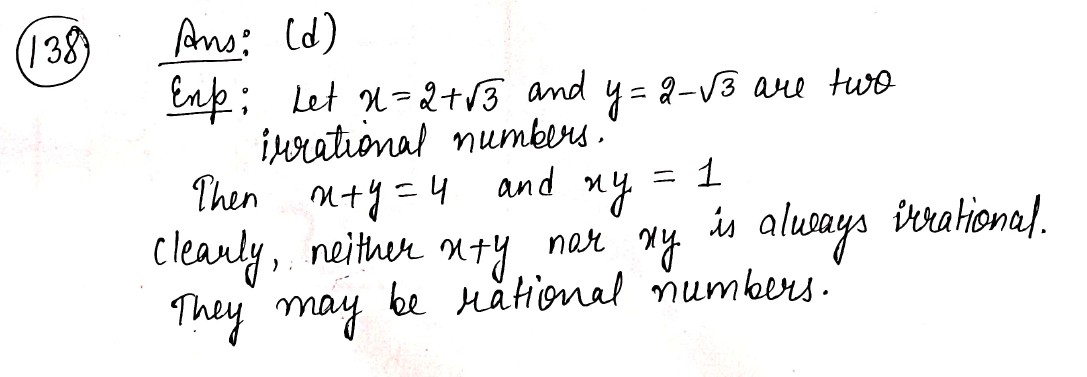 138 Ans: (d)
Exp: Let x=2+√3 and y=2-√3 are two
irrational numbers.
Then x+y=4 and xy = 1
Clearly, neither x+y nor xy is always irrational.
They may be rational numbers.